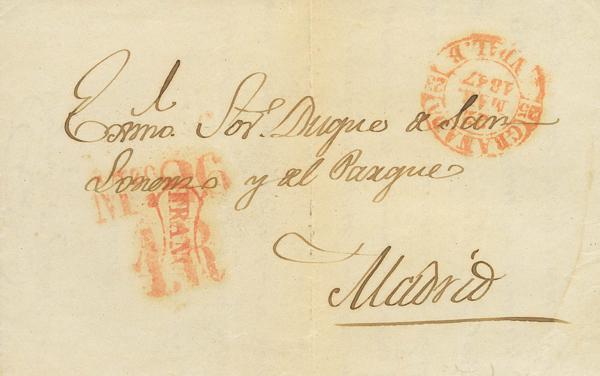 Exmo. Sor. Duque de San
Lorenzo y del Parque
Madrid
GRANADA
1847
FRANCO
1R